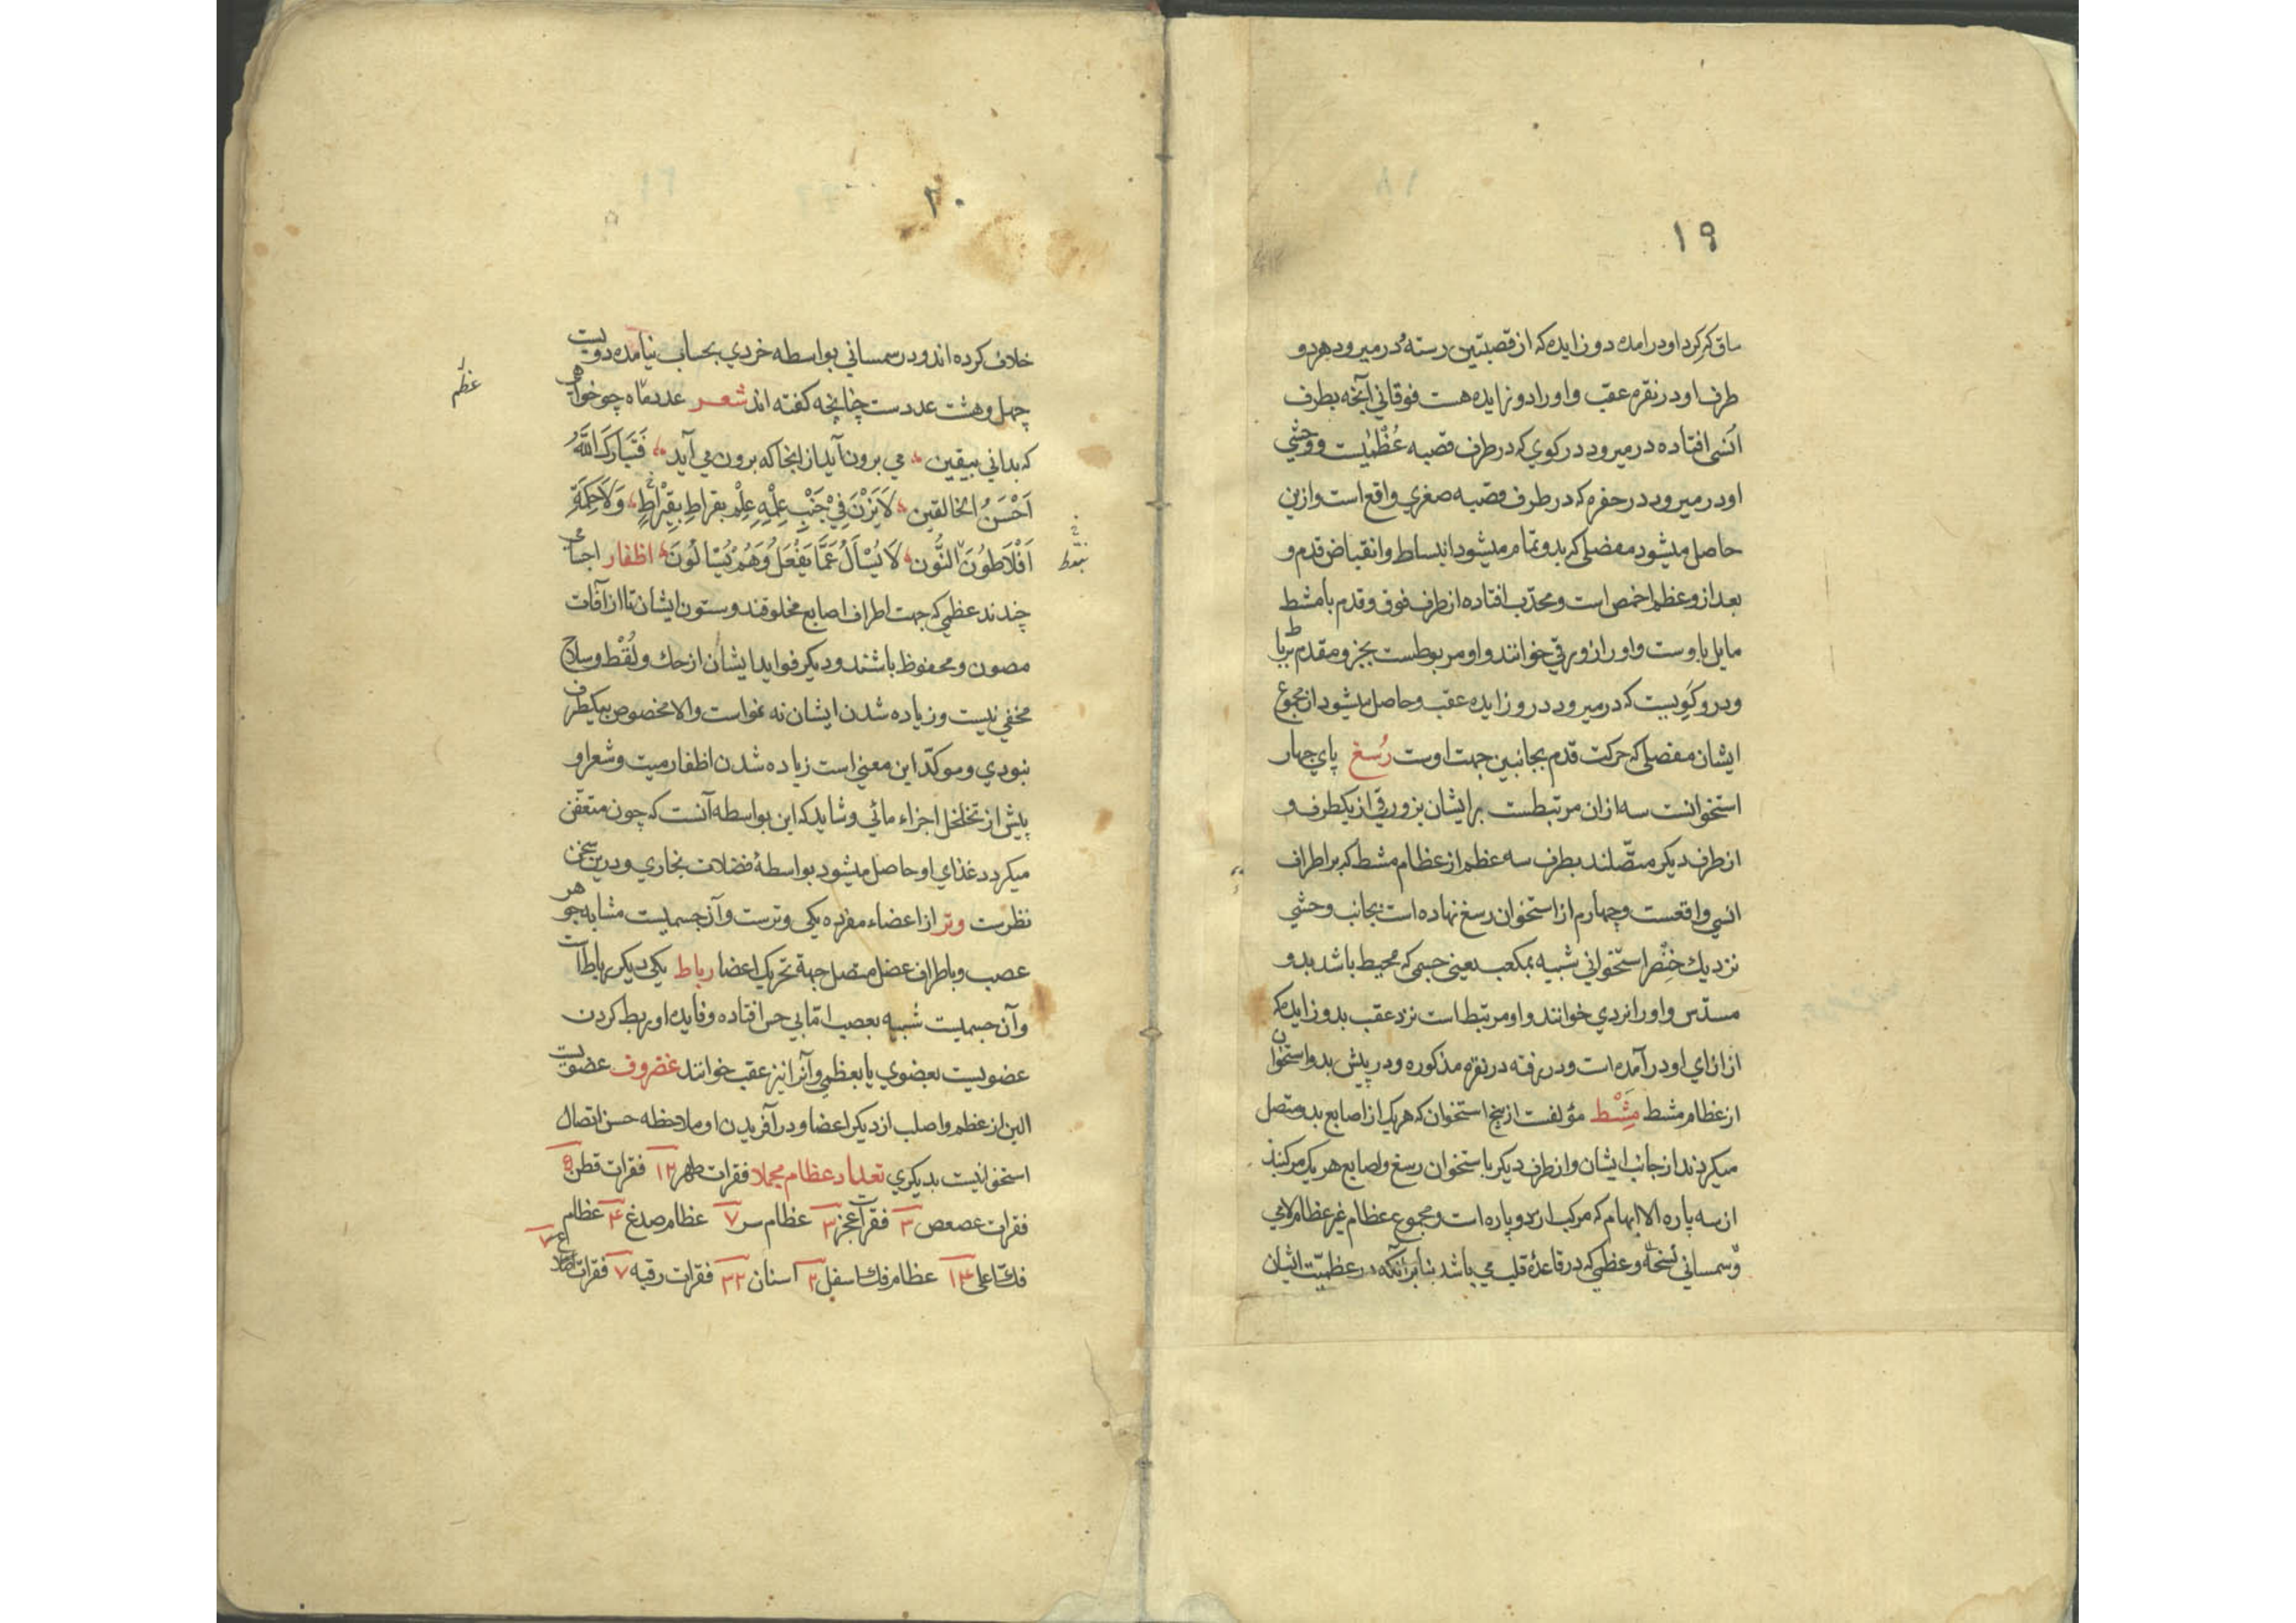 ١٩
ساق كر كرد او درامده دو زايده كه از قصبتين رسته در ميرود هر دو
طرف او در نقره عقب و او را دو زايده هست فوقاني آنچه بطرف
انسى افتاده در ميرود در كوي كه در طرف قصبه عظميست و وحشي
او در ميرود در حفره كه در طرف قصبه صغري واقع است و ازين
حاصل ميشود مفصلي كه بدو تمام ميشود انبساط و انقباض قدم و
بعد از و عظم اخمص است و محدب افتاده از طرف فوق و قدم با مشط
مايل باوست و او را زورقي خوانند و او مربوطست بجزو مقدم برباط
و درو كويست كه در ميرود درو زايده عقب و حاصل ميشود از مجموع
ايشان مفصلي كه حركت قدم بجانبين جهت اوست رُسغ پاي چهار
استخوانست سه ازان مرتبطست برايشان بزورقي از يكطرف و
از طرف ديكر متصلند بطرف سه عظم از عظام مشط كه بر اطراف
انسي واقعست و چهارم از استخوان رسغ نهاده است بجانب وحشي
نزديك خنصر استخواني شبيه بمكعب يعني جسمي كه محيط باشد بدو
مسدس و او را نردي خوانند و او مرتبط است نزد عقب بدو زايده كه
از ازاي او در آمده است و در رفته در نقره مذكوره و در پيش بدو استخوان
از عظام مشط مِشْط مؤلفست از پنج استخوان كه هر يك از اصابع بدو متصل
ميكردند از جانب ايشان و از طرف ديكر با استخوان رسغ و اصابع هر يك مركبند
از سه پاره الا ابهام كه مركب از دو پاره است و مجموع عظام غير عظام لامي
و سمساني و عظمي كه در قاعدهٔ قلب مي باشد بنابر آنكه در عظميت ايشان
٢٠
خلاف كرده اند و در سمساني بواسطه خردي بحساب نيامده دويست
چهل و هشت عددست چنانچه كفته اند شعر عدد ماه چو خواهي
كه بداني بيقين مي برون آيد از انجا كه برون مي آيد فَتَبَارَكَ اللَّهُ
اَحْسَنُ الخالقين لَا يَزِنَ فِيْ جَنْبِ عِلْمِهِ عِلْم بقراط بِقِيْراطٍ وَلَا حِكَمةِ
اَفْلَاطُونَ النُّون لَا يُسْأَلُ عَمَّا يَفْعَلُ وَهُمْ يُسْالُونَ اظفار اجسامي
چندند عظمي كه جهت اطراف اصابع مخلوقند و ستون ايشان تا از آفات
مصون و محفوظ باشند و ديكر فوايد ايشان از حك و لُقْط و سلاح
مخفي نيست و زياده شدن ايشان نه نمواست والا مخصوص بيكطرف
نبودي و موكد اين معني است زياده شدن اظفار ميت و شعر او
پيش از تخلخل اجزاء مائي و شايد كه اين بواسطه آنست كه چون متعفن
ميكردد غذاي او حاصل ميشود بواسطهٔ فضلات بخاري و درين سخن
نظرست وتر از اعضاء مفرده يكي وترست و آن جسميست مشابه جوهر
عصب و باطراف عضل متصل جهة تحريك اعضا رباط يكي ديكر رباط است
و آن جسميست شبيه بعصب اما بي حس افتاده و فايده او ربط كردن
عضويست بعضوي يا بعظمي و آنرا نيز عقب خوانند غضروف عضويست
الين از عظم و اصلب از ديكر اعضا و در آفريدن او ملاحظه حسن اتصال
استخوانيست بديكري تعداد عظام مجملا فقرات ظهر ١٢ فقرات قطن ٥
فقرات عصعص ٣ فقرات عجز ٣ عظام سر ٧ عظام صدغ ٤ عظام
فك اعلي ١٤ عظام فك اسفل ٢ اسنان ٣٢ فقرات رقبه ٧ فقرات اضلاع ٧
عظم